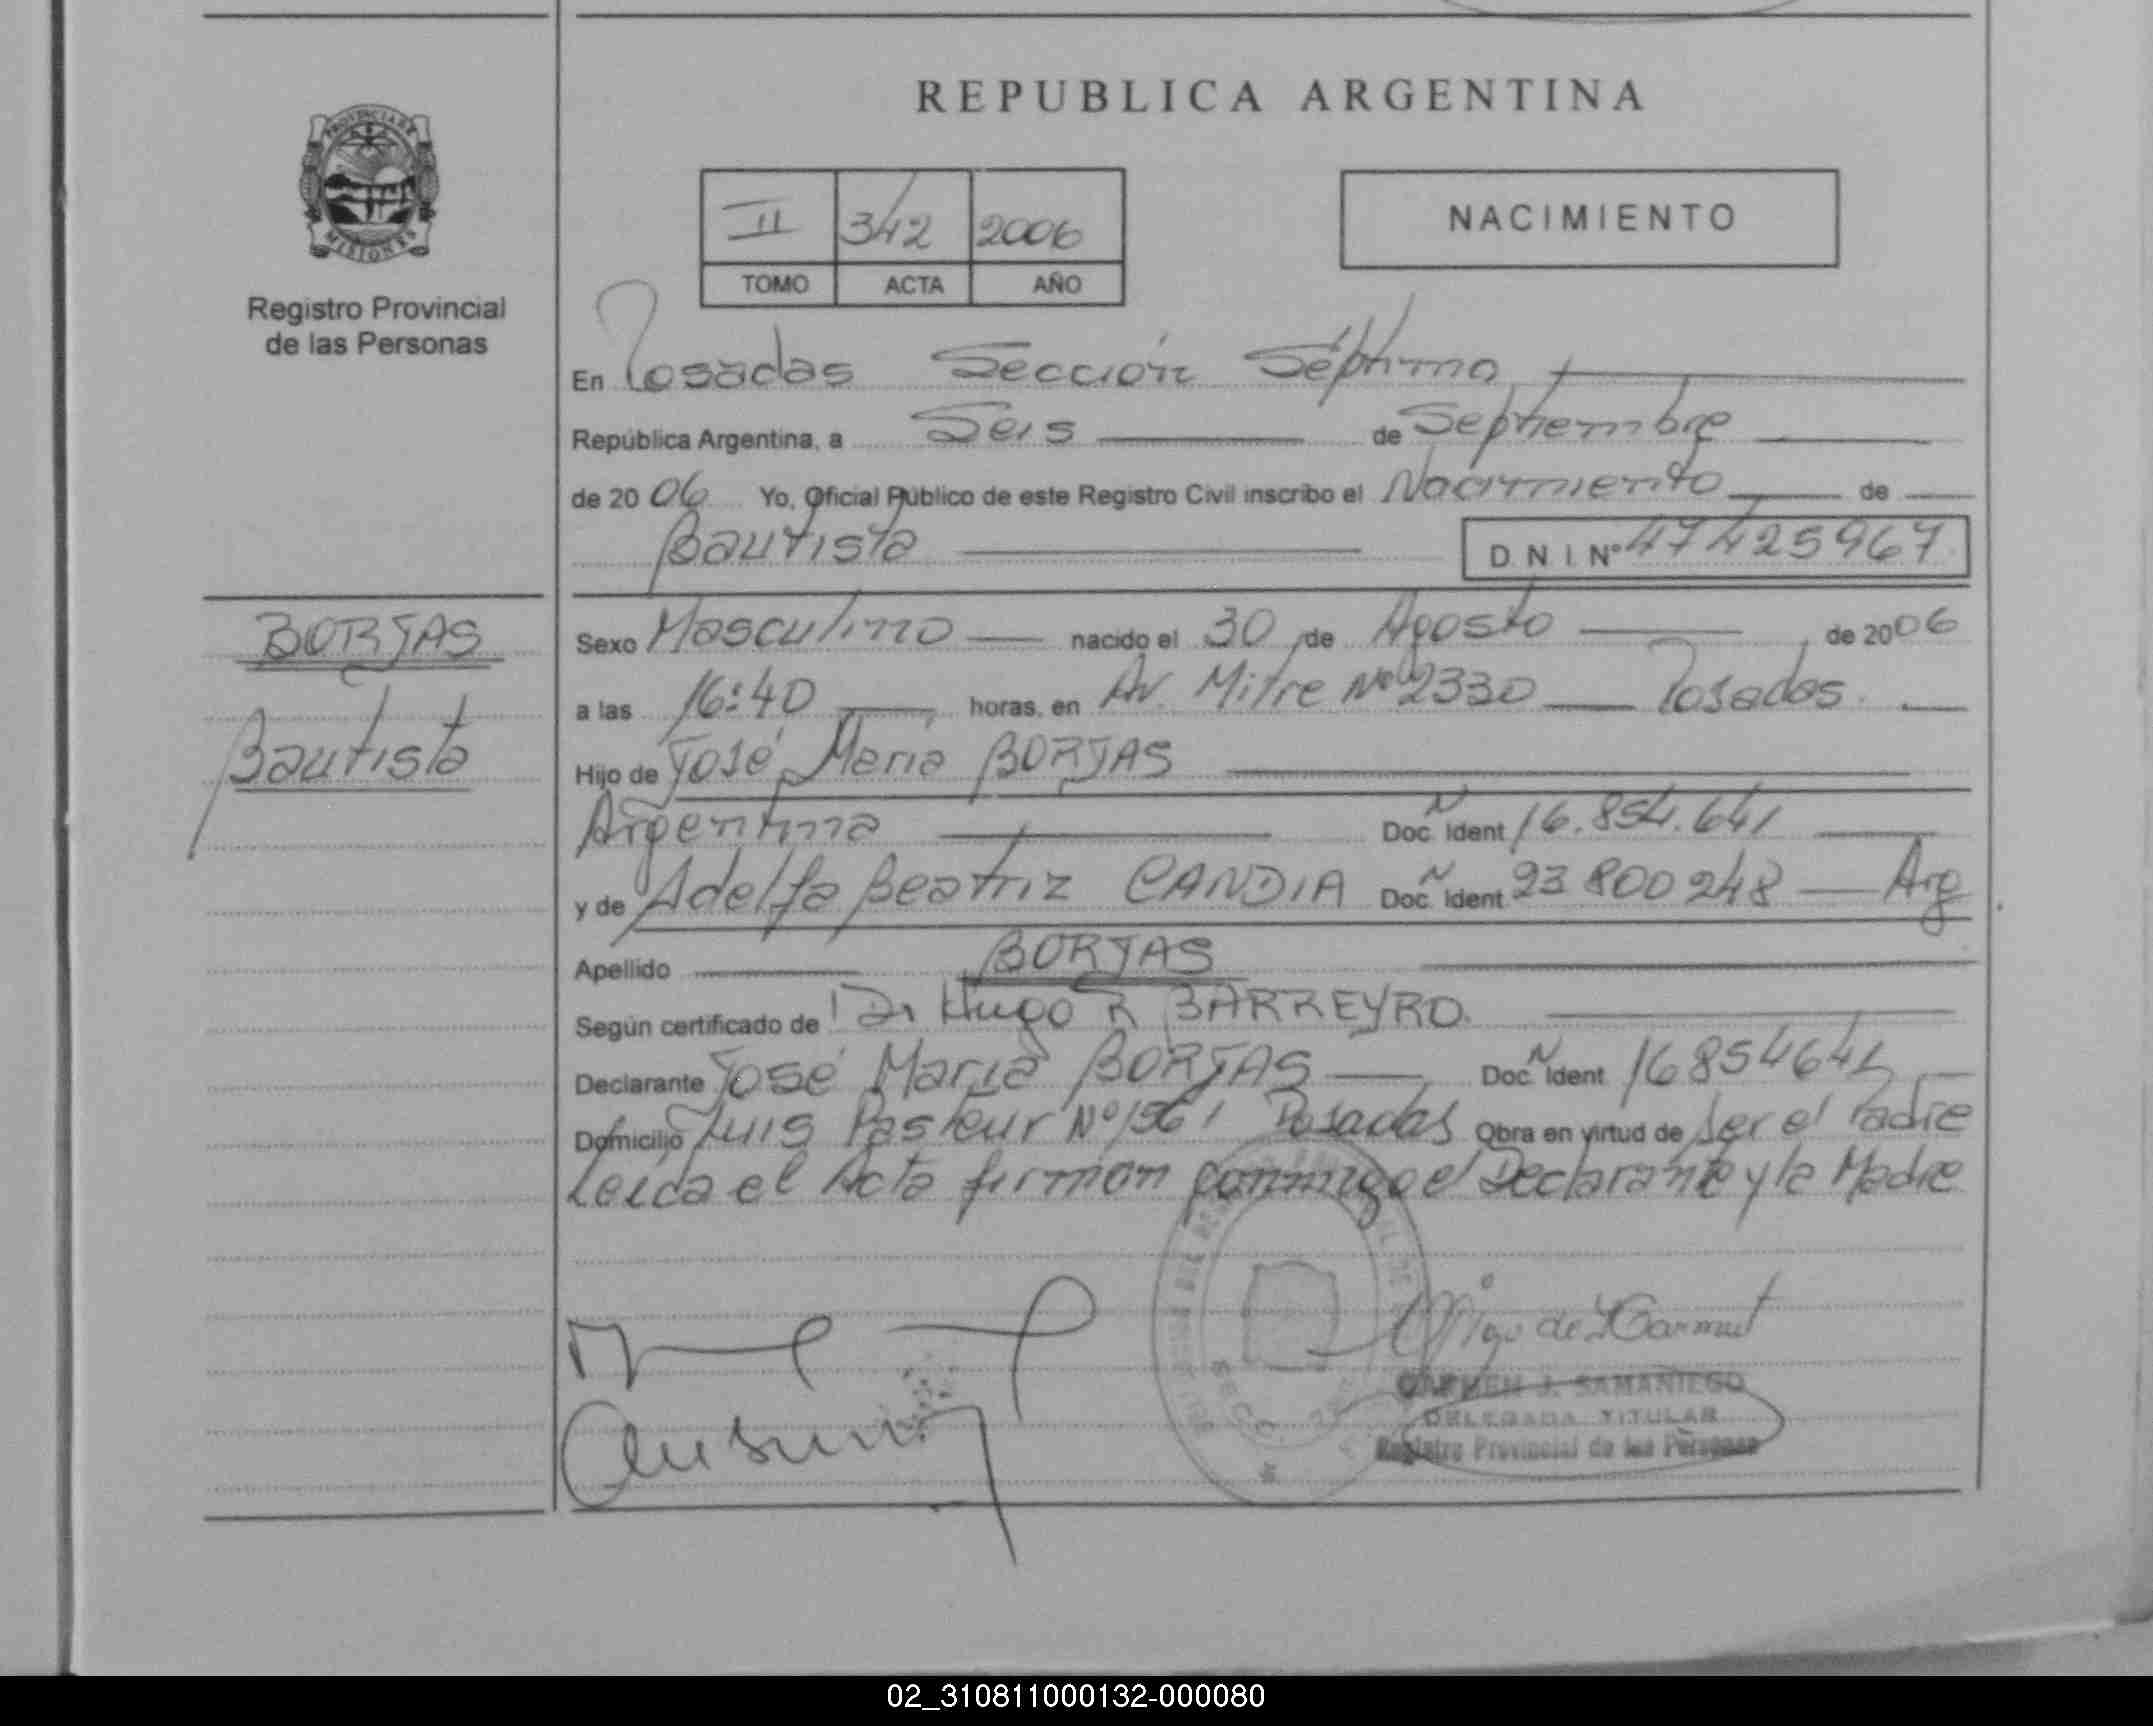 REPUBLICA ARGENTINA
PROVINCIA DE
MISIONES
Registro Provincial
de las Personas
II 342 2006
TOMO ACTA AÑO
NACIMIENTO
En Posadas Sección Séptima
República Argentina, a Seis de Septiembre
de 2006 Yo, Oficial Público de este Registro Civil inscribo el Nacimiento de
Bautista D N I Nº 47425967
BORJAS
Bautista
Sexo Masculino nacido el 30 de Agosto de 2006
a las 16:40 horas, en Av. Mitre Nº 2330 Posadas.
Hijo de José María BORJAS
Argentina Doc. Ident 16.854.641
y de Adelfa Beatriz CANDIA Doc. Ident 23800248 Arg
Apellido BORJAS
Según certificado de Dr Hugo R BARREYRO.
Declarante José María BORJAS Doc. Ident 16854641
Domicilio Luis Pasteur Nº 1561 Posadas Obra en virtud de Ser el Padre
Leída el Acta firman conmigo el Declarante y la Madre
CARMEN J. SAMANIEGO
DELEGADA TITULAR
Registro Provincial de las Personas
02_310811000132-000080